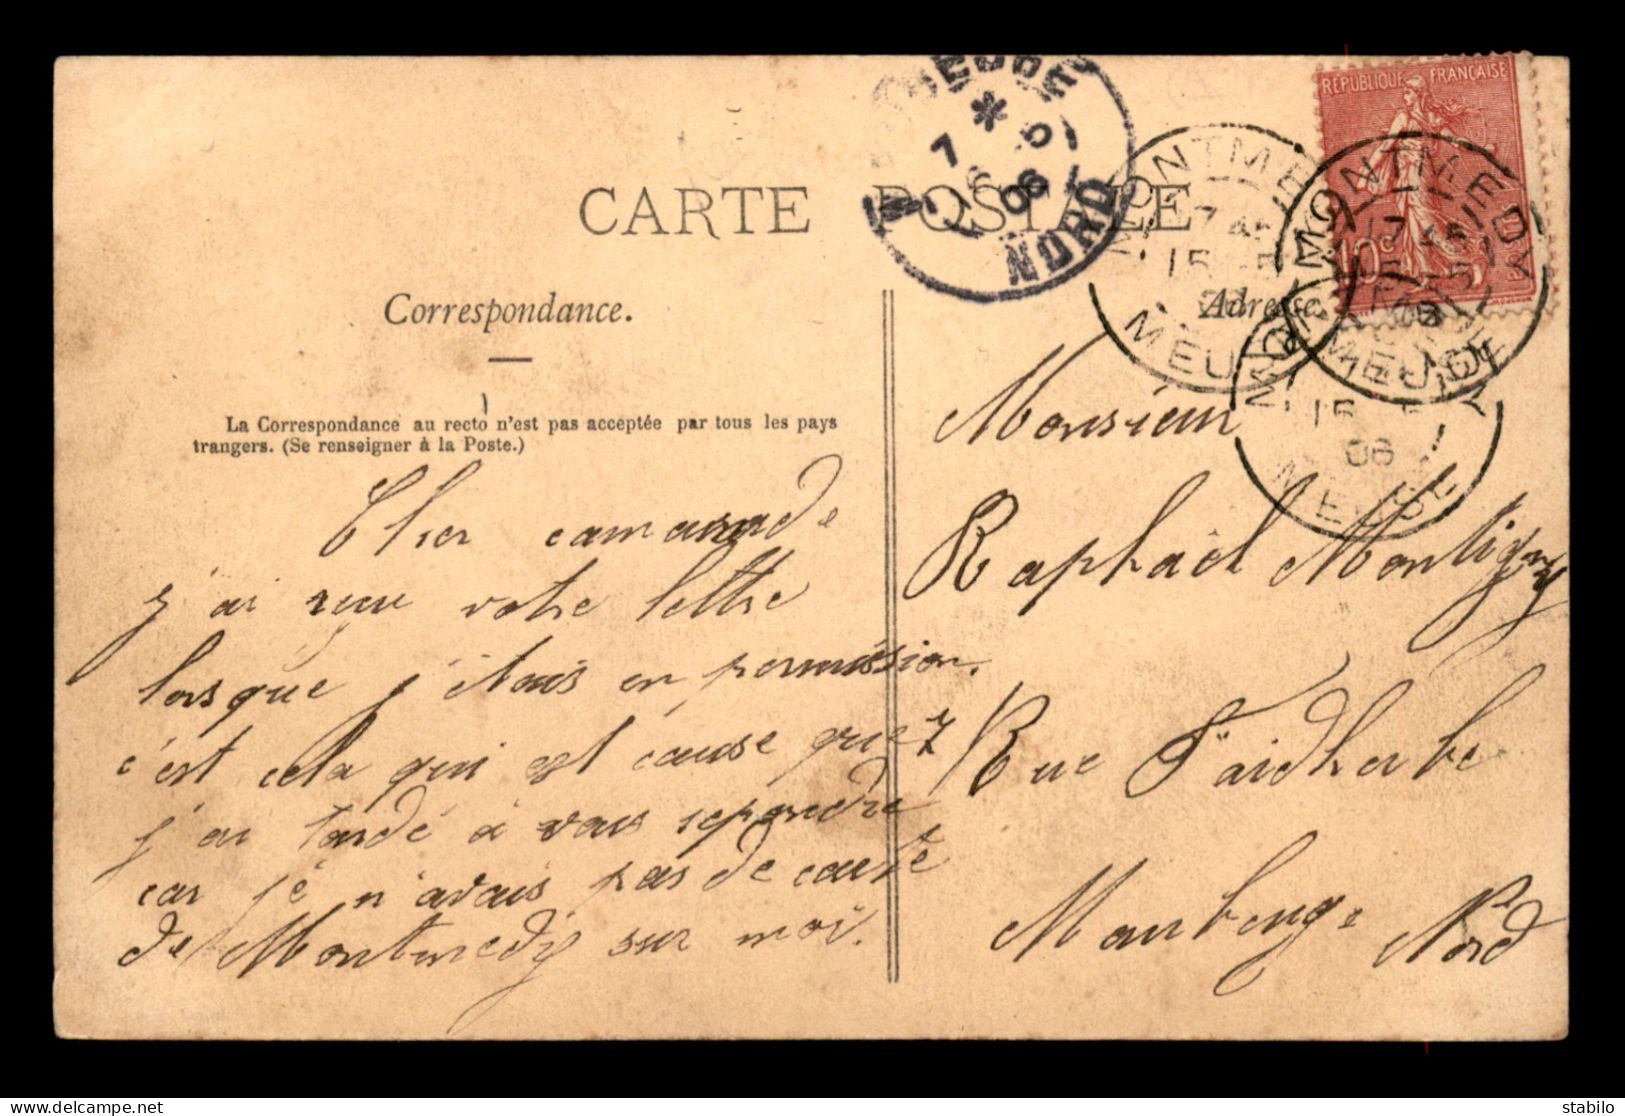 CARTE POSTALE
Correspondance.
La Correspondance au recto n'est pas acceptée par tous les pays
trangers. (Se renseigner à la Poste.)
Cher camarade
j'ai reçu votre lettre
lorsque j'étais en permission.
c'est cela qui est cause que
j'ai tardé à vous repondre
car je n'avais pas de carte
de Montmedy sur moi.
NORD
7 * 5
06
RÉPUBLIQUE FRANÇAISE
10c
MONTMEDY
15 5
06
MEUSE
MONTMEDY
MEUSE
MEUSE
Adresse
Monsieur
Raphaël Montigny
Rue Faidherbe
Maubeuge
Nord
stabilo